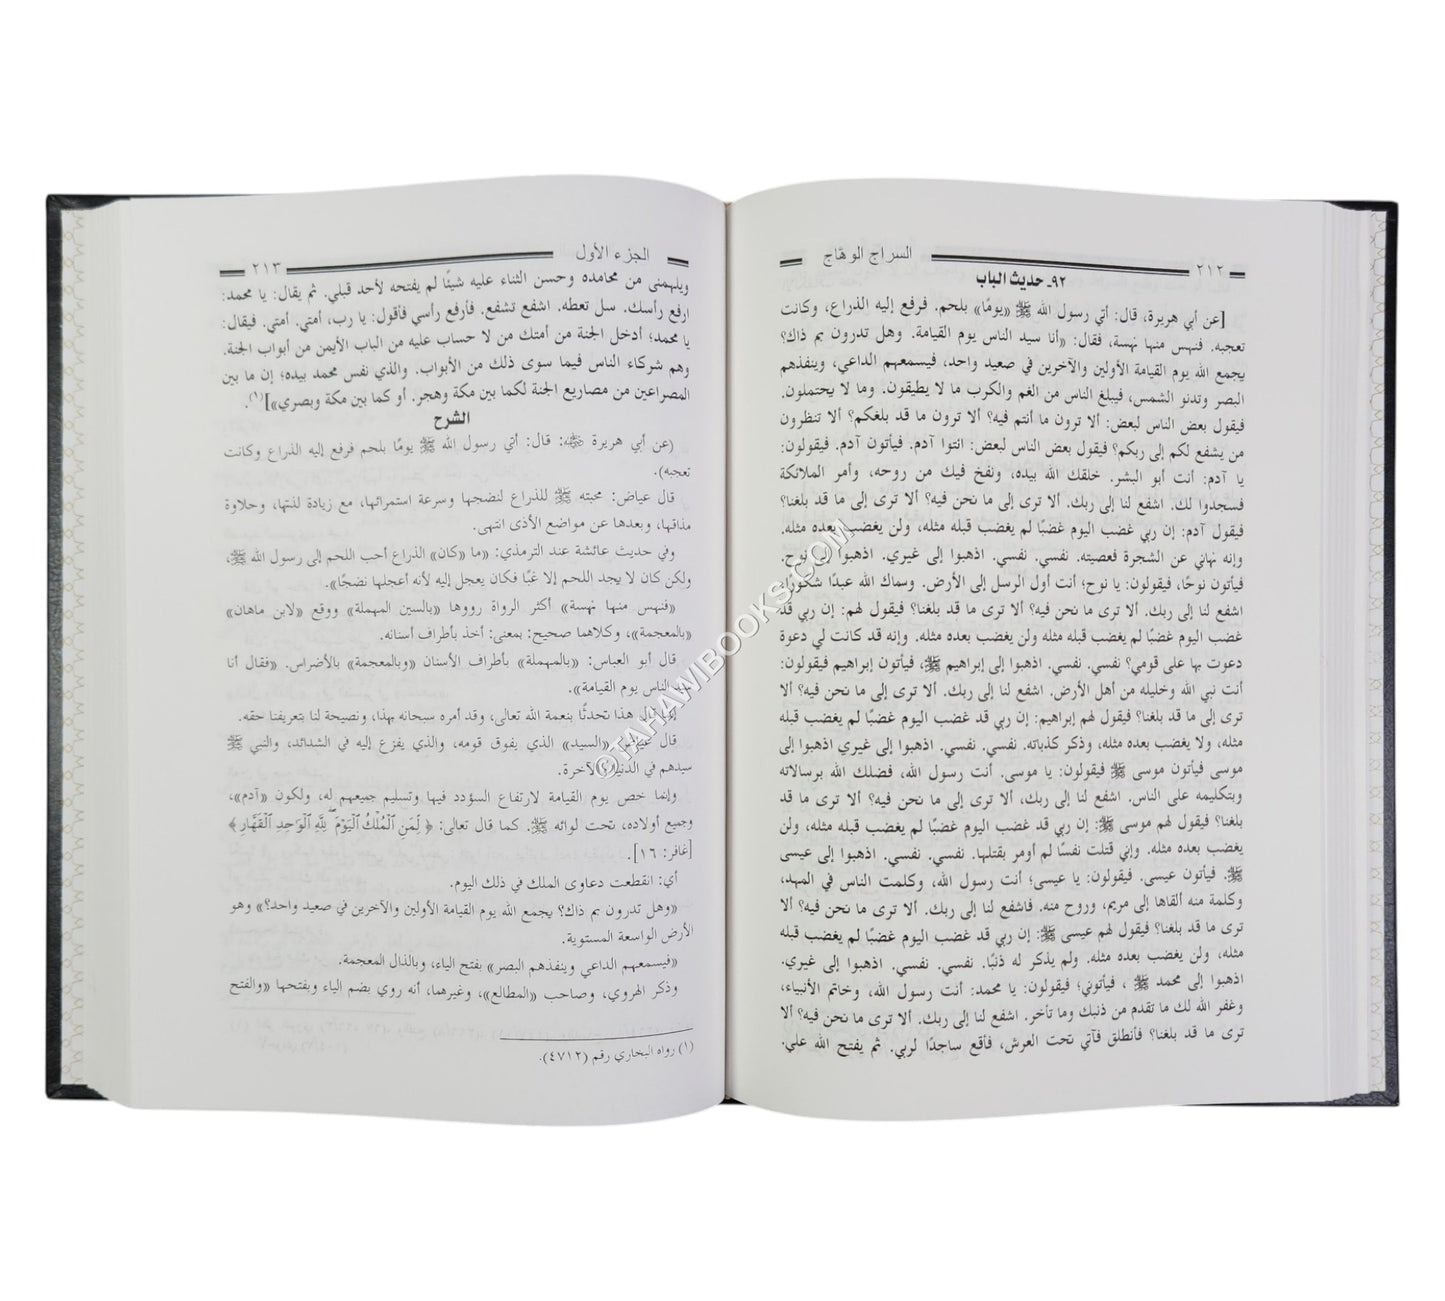 ٢١٢ السراج الوهاج
٩٢ـ حديث الباب
[عن أبي هريرة، قال: أتي رسول الله ﷺ «يومًا» بلحم. فرفع إليه الذراع، وكانت
تعجبه. فنهس منها نهسة، فقال: «أنا سيد الناس يوم القيامة. وهل تدرون بم ذاك؟
يجمع الله يوم القيامة الأولين والآخرين في صعيد واحد، فيسمعهم الداعي، وينفذهم
البصر وتدنو الشمس، فيبلغ الناس من الغم والكرب ما لا يطيقون. وما لا يحتملون.
فيقول بعض الناس لبعض: ألا ترون ما أنتم فيه؟ ألا ترون ما قد بلغكم؟ ألا تنظرون
من يشفع لكم إلى ربكم؟ فيقول بعض الناس لبعض: ائتوا آدم. فيأتون آدم. فيقولون:
يا آدم: أنت أبو البشر. خلقك الله بيده، ونفخ فيك من روحه، وأمر الملائكة
فسجدوا لك. اشفع لنا إلى ربك. ألا ترى إلى ما نحن فيه؟ ألا ترى إلى ما قد بلغنا؟
فيقول آدم: إن ربي غضب اليوم غضبًا لم يغضب قبله مثله، ولن يغضب بعده مثله.
وإنه نهاني عن الشجرة فعصيته. نفسي. نفسي. اذهبوا إلى غيري. اذهبوا إلى نوح.
فيأتون نوحًا، فيقولون: يا نوح؛ أنت أول الرسل إلى الأرض. وسماك الله عبدًا شكورًا؛
اشفع لنا إلى ربك. ألا ترى ما نحن فيه؟ ألا ترى ما قد بلغنا؟ فيقول لهم: إن ربي قد
غضب اليوم غضبًا لم يغضب قبله مثله ولن يغضب بعده مثله. وإنه قد كانت لي دعوة
دعوت بها على قومي؟ نفسي. نفسي. اذهبوا إلى إبراهيم ﷺ، فيأتون إبراهيم فيقولون:
أنت نبي الله وخليله من أهل الأرض. اشفع لنا إلى ربك. ألا ترى إلى ما نحن فيه؟ ألا
ترى إلى ما قد بلغنا؟ فيقول لهم إبراهيم: إن ربي قد غضب اليوم غضبًا لم يغضب قبله
مثله، ولا يغضب بعده مثله، وذكر كذباته. نفسي. نفسي. اذهبوا إلى غيري اذهبوا إلى
موسى فيأتون موسى ﷺ فيقولون: يا موسى. أنت رسول الله، فضلك الله برسالاته
وبتكليمه على الناس. اشفع لنا إلى ربك، ألا ترى إلى ما نحن فيه؟ ألا ترى ما قد
بلغنا؟ فيقول لهم موسى ﷺ: إن ربي قد غضب اليوم غضبًا لم يغضب قبله مثله، ولن
يغضب بعده مثله. وإني قتلت نفسًا لم أومر بقتلها. نفسي. نفسي. اذهبوا إلى عيسى
ﷺ. فيأتون عيسى. فيقولون: يا عيسى؛ أنت رسول الله، وكلمت الناس في المهد،
وكلمة منه ألقاها إلى مريم، وروح منه. فاشفع لنا إلى ربك. ألا ترى ما نحن فيه؟ ألا
ترى ما قد بلغنا؟ فيقول لهم عيسى ﷺ: إن ربي قد غضب اليوم غضبًا لم يغضب قبله
مثله، ولن يغضب بعده مثله. ولم يذكر له ذنبًا. نفسي. نفسي. اذهبوا إلى غيري.
اذهبوا إلى محمد ﷺ، فيأتوني؛ فيقولون: يا محمد: أنت رسول الله، وخاتم الأنبياء،
وغفر الله لك ما تقدم من ذنبك وما تأخر. اشفع لنا إلى ربك. ألا ترى ما نحن فيه؟ ألا
ترى ما قد بلغنا؟ فأنطلق فآتي تحت العرش، فأقع ساجدًا لربي. ثم يفتح الله علي.
الجزء الأول ٢١٣
ويلهمنى من محامده وحسن الثناء عليه شيئًا لم يفتحه لأحد قبلي. ثم يقال: يا محمد:
ارفع رأسك. سل تعطه. اشفع تشفع. فأرفع رأسي فأقول: يا رب، أمتي. أمتي. فيقال:
يا محمد؛ أدخل الجنة من أمتك من لا حساب عليه من الباب الأيمن من أبواب الجنة.
وهم شركاء الناس فيما سوى ذلك من الأبواب. والذي نفس محمد بيده؛ إن ما بين
المصراعين من مصاريع الجنة لكما بين مكة وهجر. أو كما بين مكة وبصري»](١).
الشرح
(عن أبي هريرة ﷺ: قال: أتي رسول الله ﷺ يومًا بلحم فرفع إليه الذراع وكانت
تعجبه).
قال عياض: محبته ﷺ للذراع لنضجها وسرعة استمرائها، مع زيادة لذتها، وحلاوة
مذاقها، وبعدها عن مواضع الأذى انتهى.
وفي حديث عائشة عند الترمذي: «ما «كان» الذراع أحب اللحم إلى رسول الله ﷺ،
ولكن كان لا يجد اللحم إلا غبًا فكان يعجل إليه لأنه أعجلها نضجًا».
«فنهس منها نهسة» أكثر الرواة رووها «بالسين المهملة» ووقع «لابن ماهان»
«بالمعجمة»، وكلاهما صحيح: بمعنى: أخذ بأطراف أسنانه.
قال أبو العباس: «بالمهملة» بأطراف الأسنان «وبالمعجمة» بالأضراس. «فقال أنا
سيد الناس يوم القيامة».
إنما قال هذا تحدثًا بنعمة الله تعالى، وقد أمره سبحانه بهذا، ونصيحة لنا بتعريفنا حقه.
قال عياض: «السيد» الذي يفوق قومه، والذي يفزع إليه في الشدائد، والنبي ﷺ
سيدهم في الدنيا والآخرة.
وإنما خص يوم القيامة لارتفاع السؤدد فيها وتسليم جميعهم له، ولكون «آدم»،
وجميع أولاده، تحت لوائه ﷺ. كما قال تعالى: ﴿لِمَنِ ٱلْمُلْكُ ٱلْيَوْمَ ۖ لِلَّهِ ٱلْوَٰحِدِ ٱلْقَهَّارِ﴾
[غافر: ١٦].
أي: انقطعت دعاوى الملك في ذلك اليوم.
«وهل تدرون بم ذاك؟ يجمع الله يوم القيامة الأولين والآخرين في صعيد واحد؟» وهو
الأرض الواسعة المستوية.
«فيسمعهم الداعي وينفذهم البصر» بفتح الياء، وبالذال المعجمة.
وذكر الهروي، وصاحب «المطالع»، وغيرهما، أنه روي بضم الياء وبفتحها «والفتح
(١) رواه البخاري رقم (٤٧١٢).
©TAHAWIBOOKS.COM